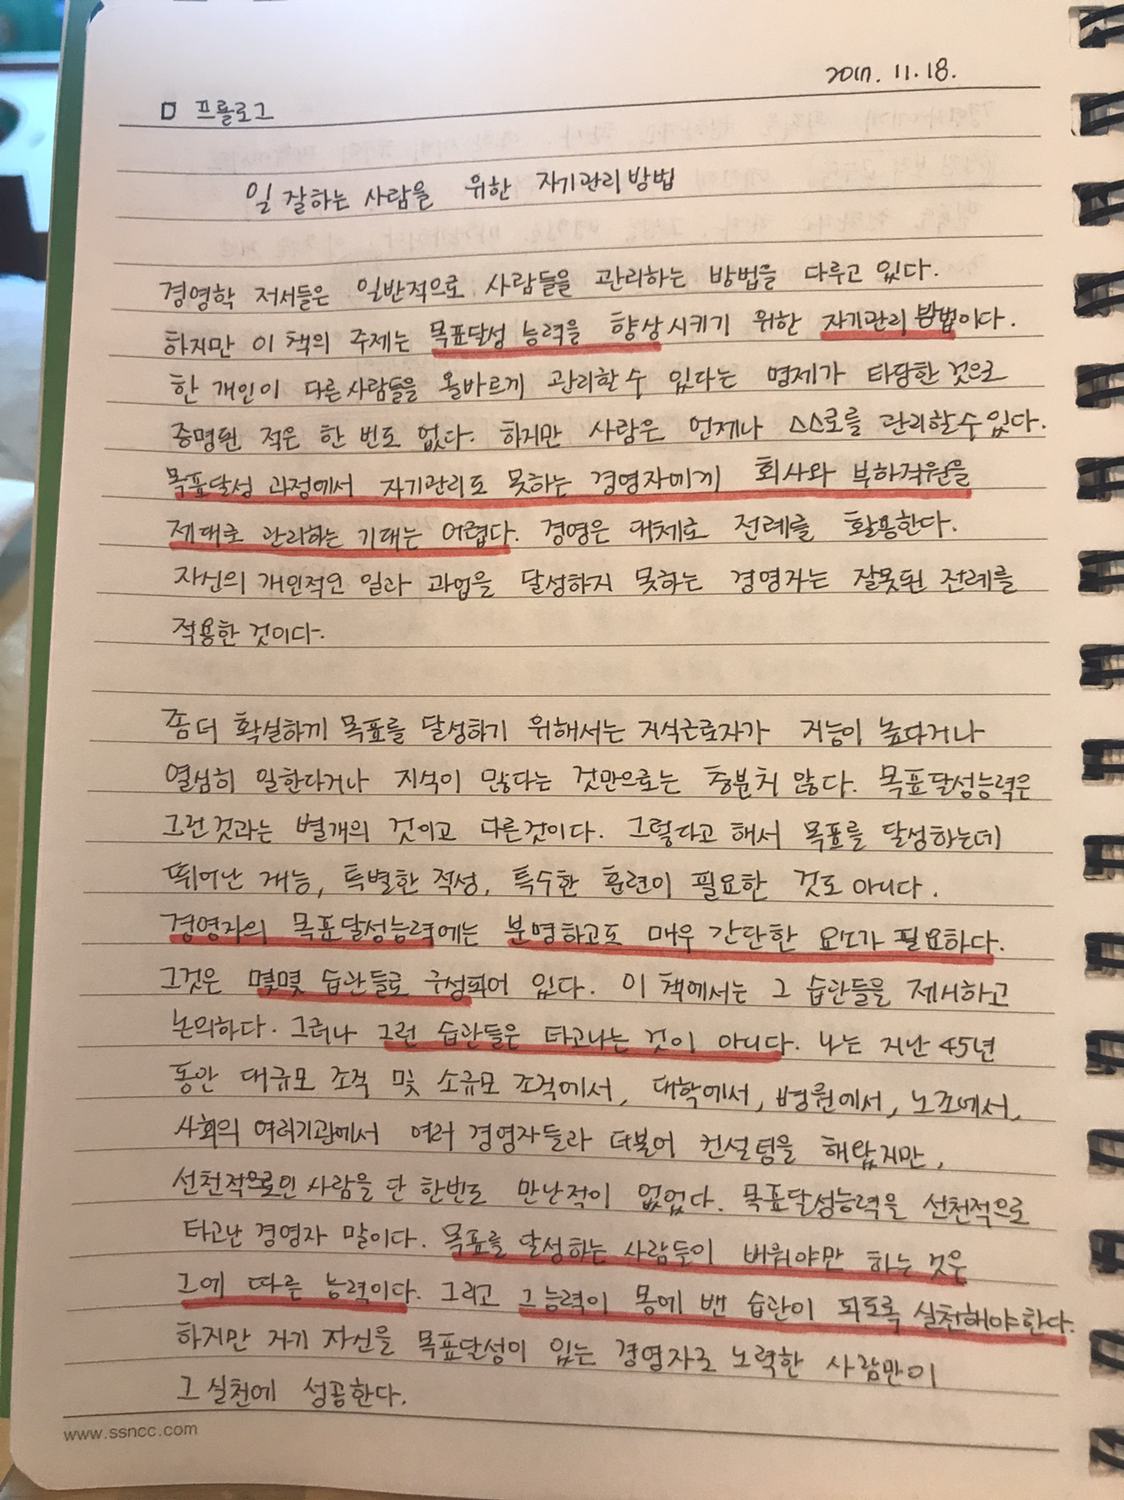 2017. 11. 18.
□ 프롤로그
일 잘하는 사람을 위한 자기관리 방법
경영학 저서들은 일반적으로 사람들을 관리하는 방법을 다루고 있다.
하지만 이 책의 주제는 목표달성 능력을 향상시키기 위한 자기관리 방법이다.
한 개인이 다른 사람들을 올바르게 관리할 수 있다는 명제가 타당한 것으로
증명된 적은 한 번도 없다. 하지만 사람은 언제나 스스로를 관리할 수 있다.
목표달성 과정에서 자기관리도 못하는 경영자에게 회사와 부하직원을
제대로 관리하는 기대는 어렵다. 경영은 대체로 전례를 활용한다.
자신의 개인적인 일과 과업을 달성하지 못하는 경영자는 잘못된 전례를
적용한 것이다.
좀 더 확실하게 목표를 달성하기 위해서는 지식근로자가 지능이 높다거나
열심히 일한다거나 지식이 많다는 것만으로는 충분치 않다. 목표달성능력은
그런 것과는 별개의 것이고 다른것이다. 그렇다고 해서 목표를 달성하는데
뛰어난 재능, 특별한 적성, 특수한 훈련이 필요한 것도 아니다.
경영자의 목표달성능력에는 분명하고도 매우 간단한 요소가 필요하다.
그것은 몇몇 습관들로 구성되어 있다. 이 책에서는 그 습관들을 제시하고
논의하다. 그러나 그런 습관들은 타고나는 것이 아니다. 나는 지난 45년
동안 대규모 조직 및 소규모 조직에서, 대학에서, 병원에서, 노조에서,
사회의 여러기관에서 여러 경영자들과 더불어 컨설팅을 해왔지만,
선천적으로인 사람을 단 한번도 만난적이 없었다. 목표달성능력을 선천적으로
타고난 경영자 말이다. 목표를 달성하는 사람들이 배워야만 하는 것은
그에 따른 능력이다. 그리고 그 능력이 몸에 밴 습관이 되도록 실천해야 한다.
하지만 자기 자신을 목표달성이 있는 경영자로 노력한 사람만이
그 실천에 성공한다.
www.ssncc.com